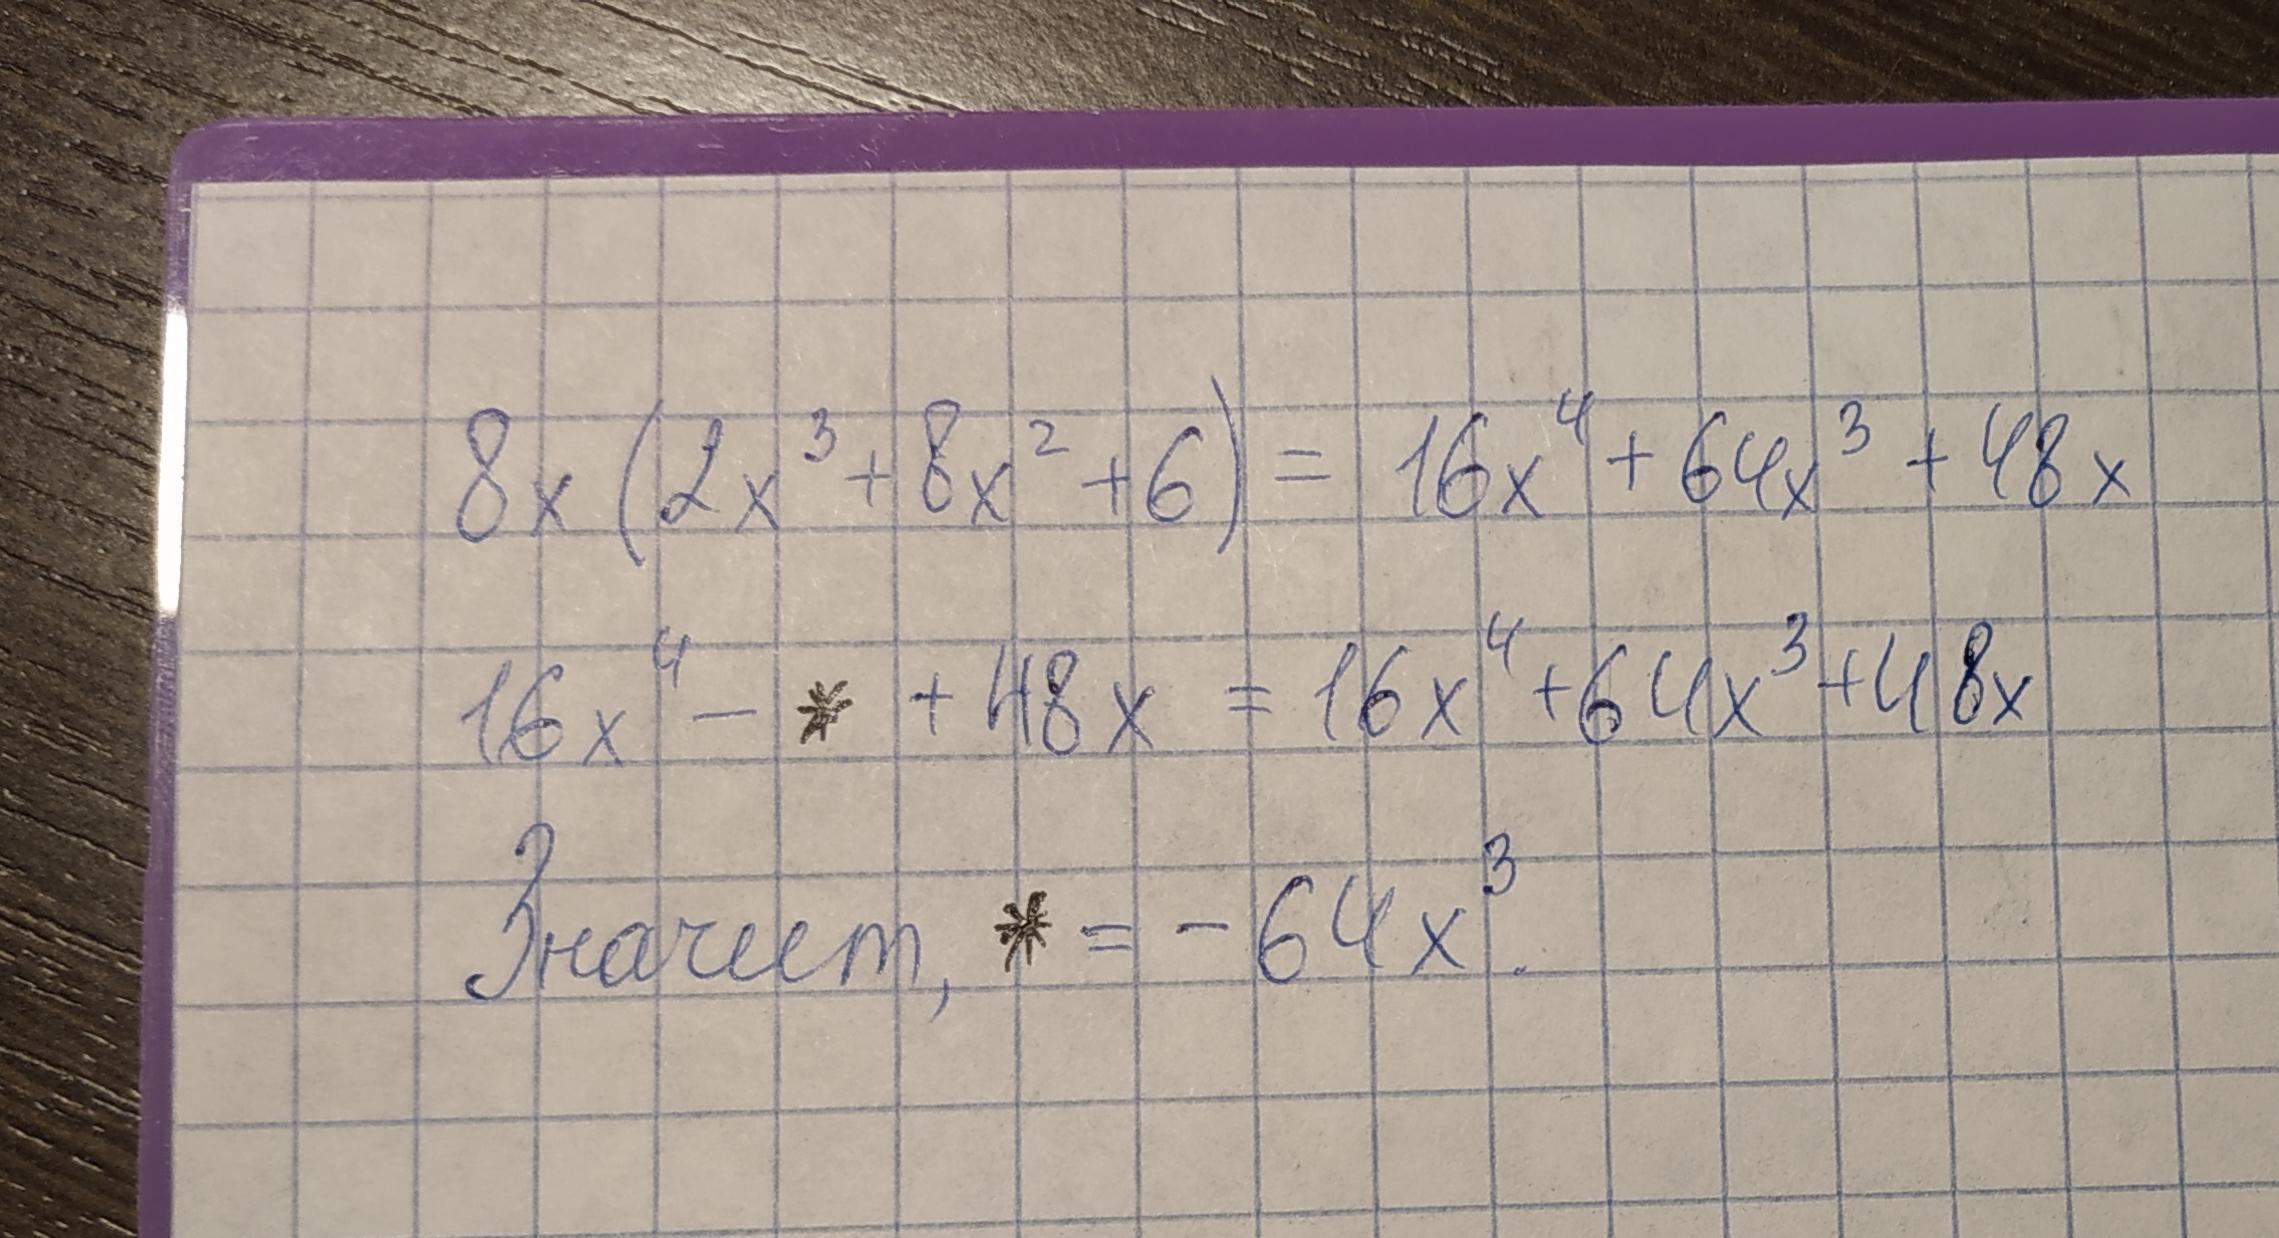 8x (2x³ + 8x² + 6) = 16x⁴ + 64x³ + 48x
16x⁴ - * + 48x = 16x⁴ + 64x³ + 48x
Значит, * = - 64x³.